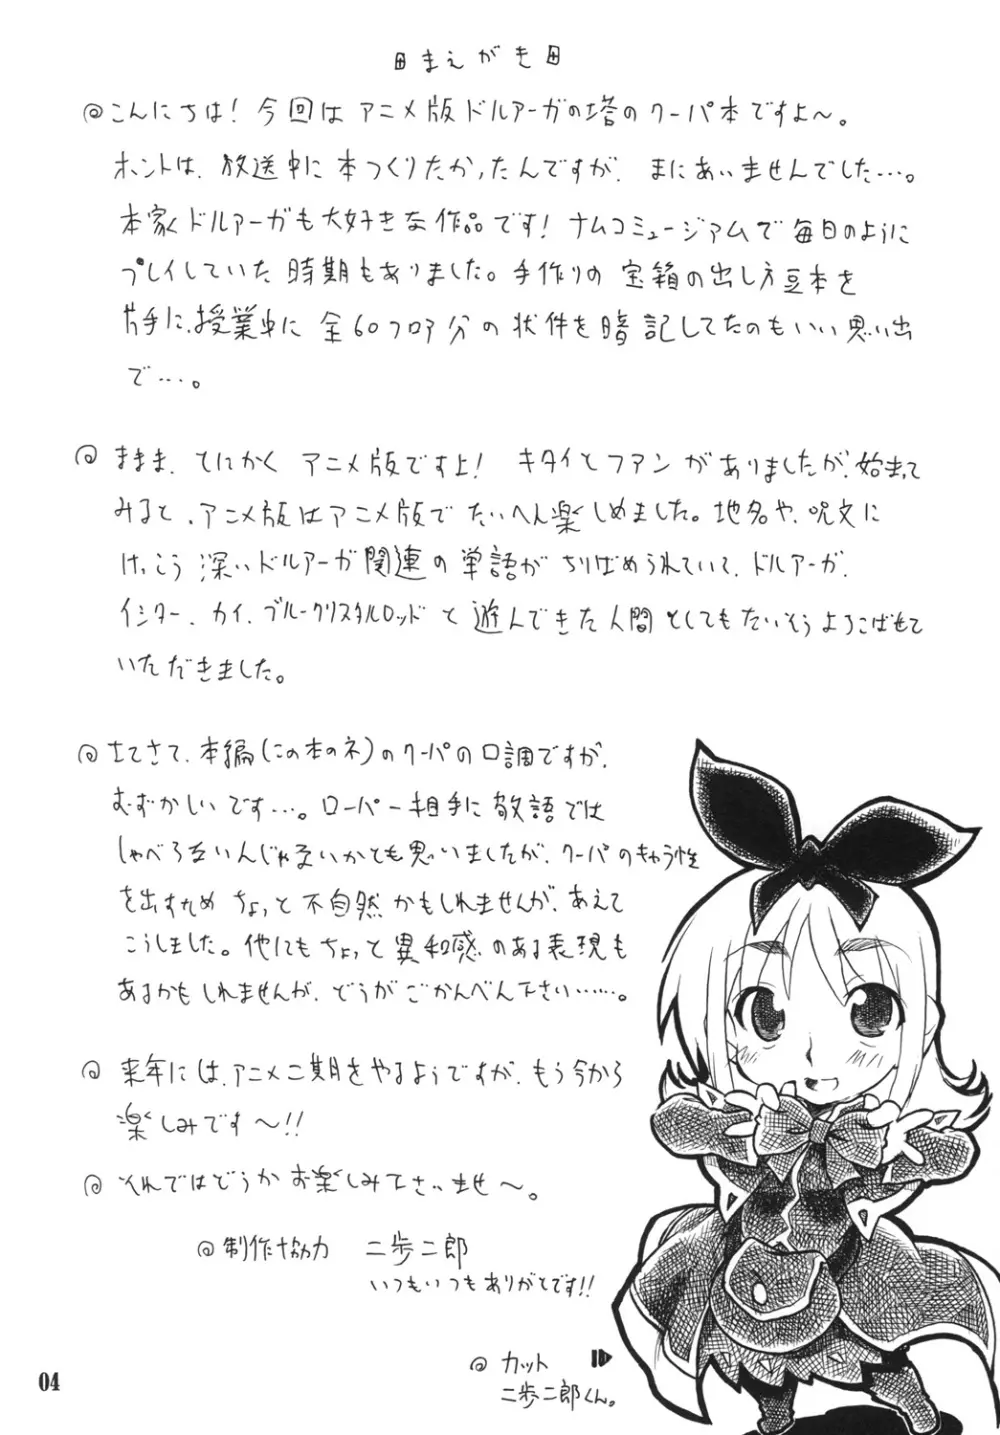 まえがき
◎こんにちは！今回はアニメ版ドルアーガの塔のクーパ本ですよ〜。
ホントは、放送中に本つくりたかったんですが、まにあいませんでした…。
本家ドルアーガも大好きな作品です！ナムコミュージアムで毎日のように
プレイしていた時期もありました。手作りの宝箱の出し方豆本を
片手に、授業中に全60フロア分の状件を暗記してたのもいい思い出
で…。
◎ままま、とにかくアニメ版ですよ！キタイとファンがありましたが、始まって
みると、アニメ版はアニメ版でたいへん楽しめました。地名や、呪文に
けっこう深いドルアーガ関連の単語がちりばめられていて、ドルアーガ、
イシター、カイ、ブルークリスタルロッドと遊んできた人間としてもたいそうよろこばせて
いただきました。
◎さてさて、本編(この本のネ)のクーパの口調ですが、
むずかしいです…。ローパー相手に敬語では
しゃべらないんじゃないかとも思いましたが、クーパのキャラ性
を出すためちょっと不自然かもしれませんが、あえて
こうしました。他にもちょっと異和感のある表現も
あるかもしれませんが、どうかごかんべん下さい……。
◎来年には、アニメ二期をやるようですが、もう今から
楽しみです〜!!
◎それではどうかお楽しみ下さいませ〜。
◎制作協力 二歩二郎
いつもいつもありがとです!!
◎カット
二歩二郎くん。
04